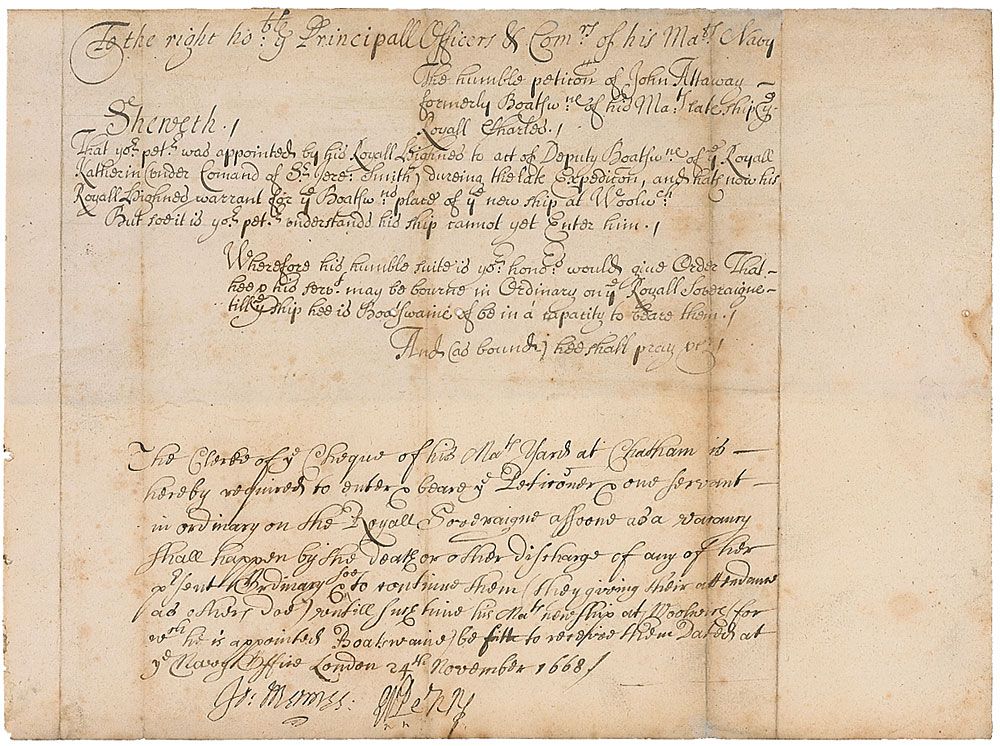 To the right ho:ble ye Principall Officers & Comrs of his Mats Navy
The humble peticon of John Attaway
formerly Boatswne of his Mats late ship ye
Royall Charles./
Sheweth./
That yor petr was appointed by his Royall Highnes to act of Deputy Boatswne of ye Royall
Katherin (under Comand of Sr Jere: Smith) dureing the late Expedicon, and hath now his
Royall Highnes warrant for ye Boatswns place of ye new ship at Woolwch:
But soe it is yor petr understands his ship cannot yet Enter him./
Wherefore his humble suite is yor honors would give Order That
hee & his servt may be bourne in Ordinary on ye Royall Soveraigne
till ye ship hee is Boatswaine of be in a capacity to beare them./
And (as bound) hee shall pray &c/
The Clerke of ye Cheque of his Mats Yard at Chatham is
hereby required to enter & beare ye Peticoner & one servant
in ordinary on the Royall Soveraigne assoone as a vacancy
shall happen by the death or other discharge of any of her
prsent Ordinary & soe to continue them (they giving their attendance
as others doe) untill such time his Mats new ship at Woolwch (for
wch he is appointed Boatswaine) be fitt to receive them Dated at
ye Navy Office London 24th November 1668/
Jo: Mennes: WPenn